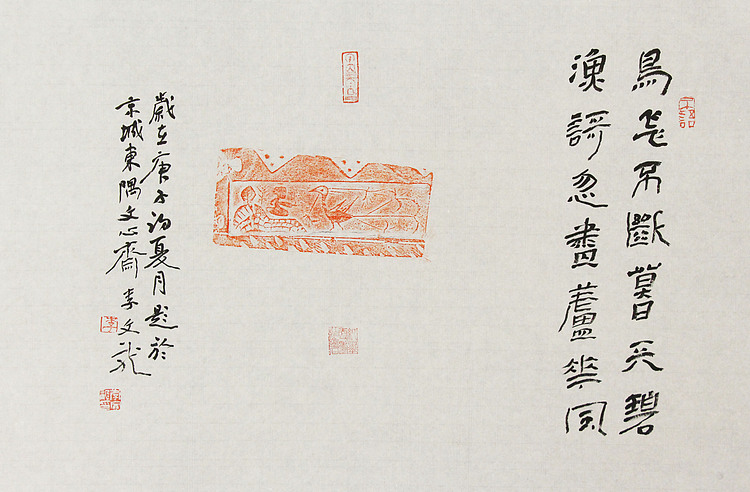 鳥飛不斷暮天碧
漁謌忽盡蘆華風
歲在庚子初夏月題於
京城東隅文心齋李文龍
李